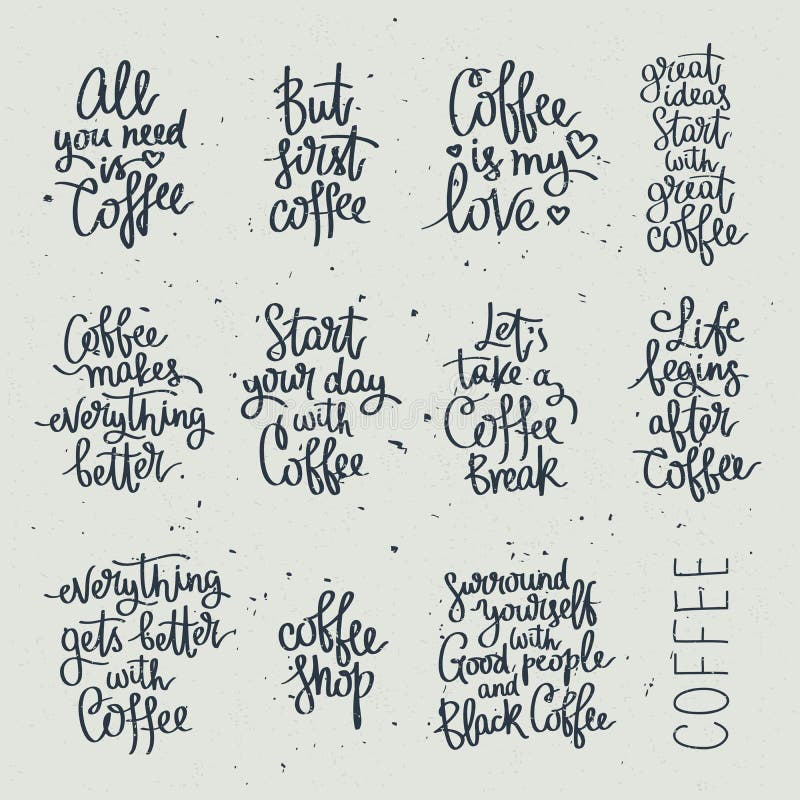 All
you need
is
Coffee
But
first
coffee
Coffee
is my
love
great
ideas
Start
with
great
coffee
Coffee
makes
everything
better.
Start
your day
with
Coffee
Let's
take a
Coffee
Break
Life
begins
after
Coffee
everything
gets better
with
Coffee
coffee
shop
Surround
yourself
with
Good people
and
Black Coffee
COFFEE